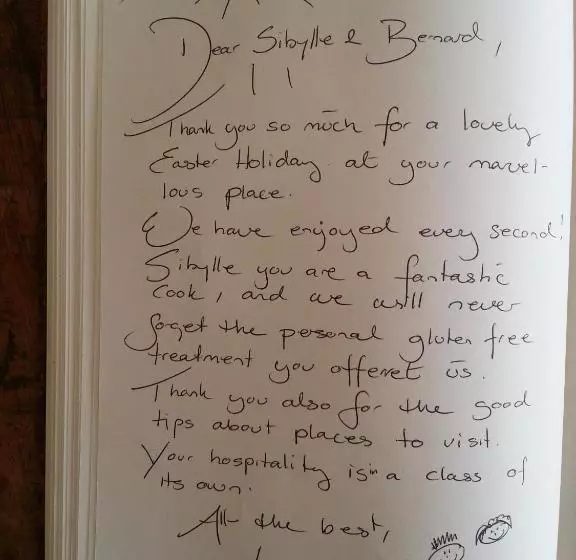 Dear Sibylle & Bernard,
Thank you so much for a lovely
Easter Holiday at your marvel-
lous place.
We have enjoyed every second!
Sibylle you are a fantastic
cook, and we will never
forget the personal gluten free
treatment you offeret us.
Thank you also for the good
tips about places to visit.
Your hospitality is in a class of
its own.
All the best,